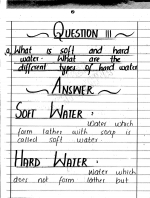 QUESTION III
Q. What is soft and hard
water. What are the
different types of hard water
ANSWER
SOFT WATER :
Water which
form lather with soap is
called soft water.
HARD WATER :
Water which
does not form lather but